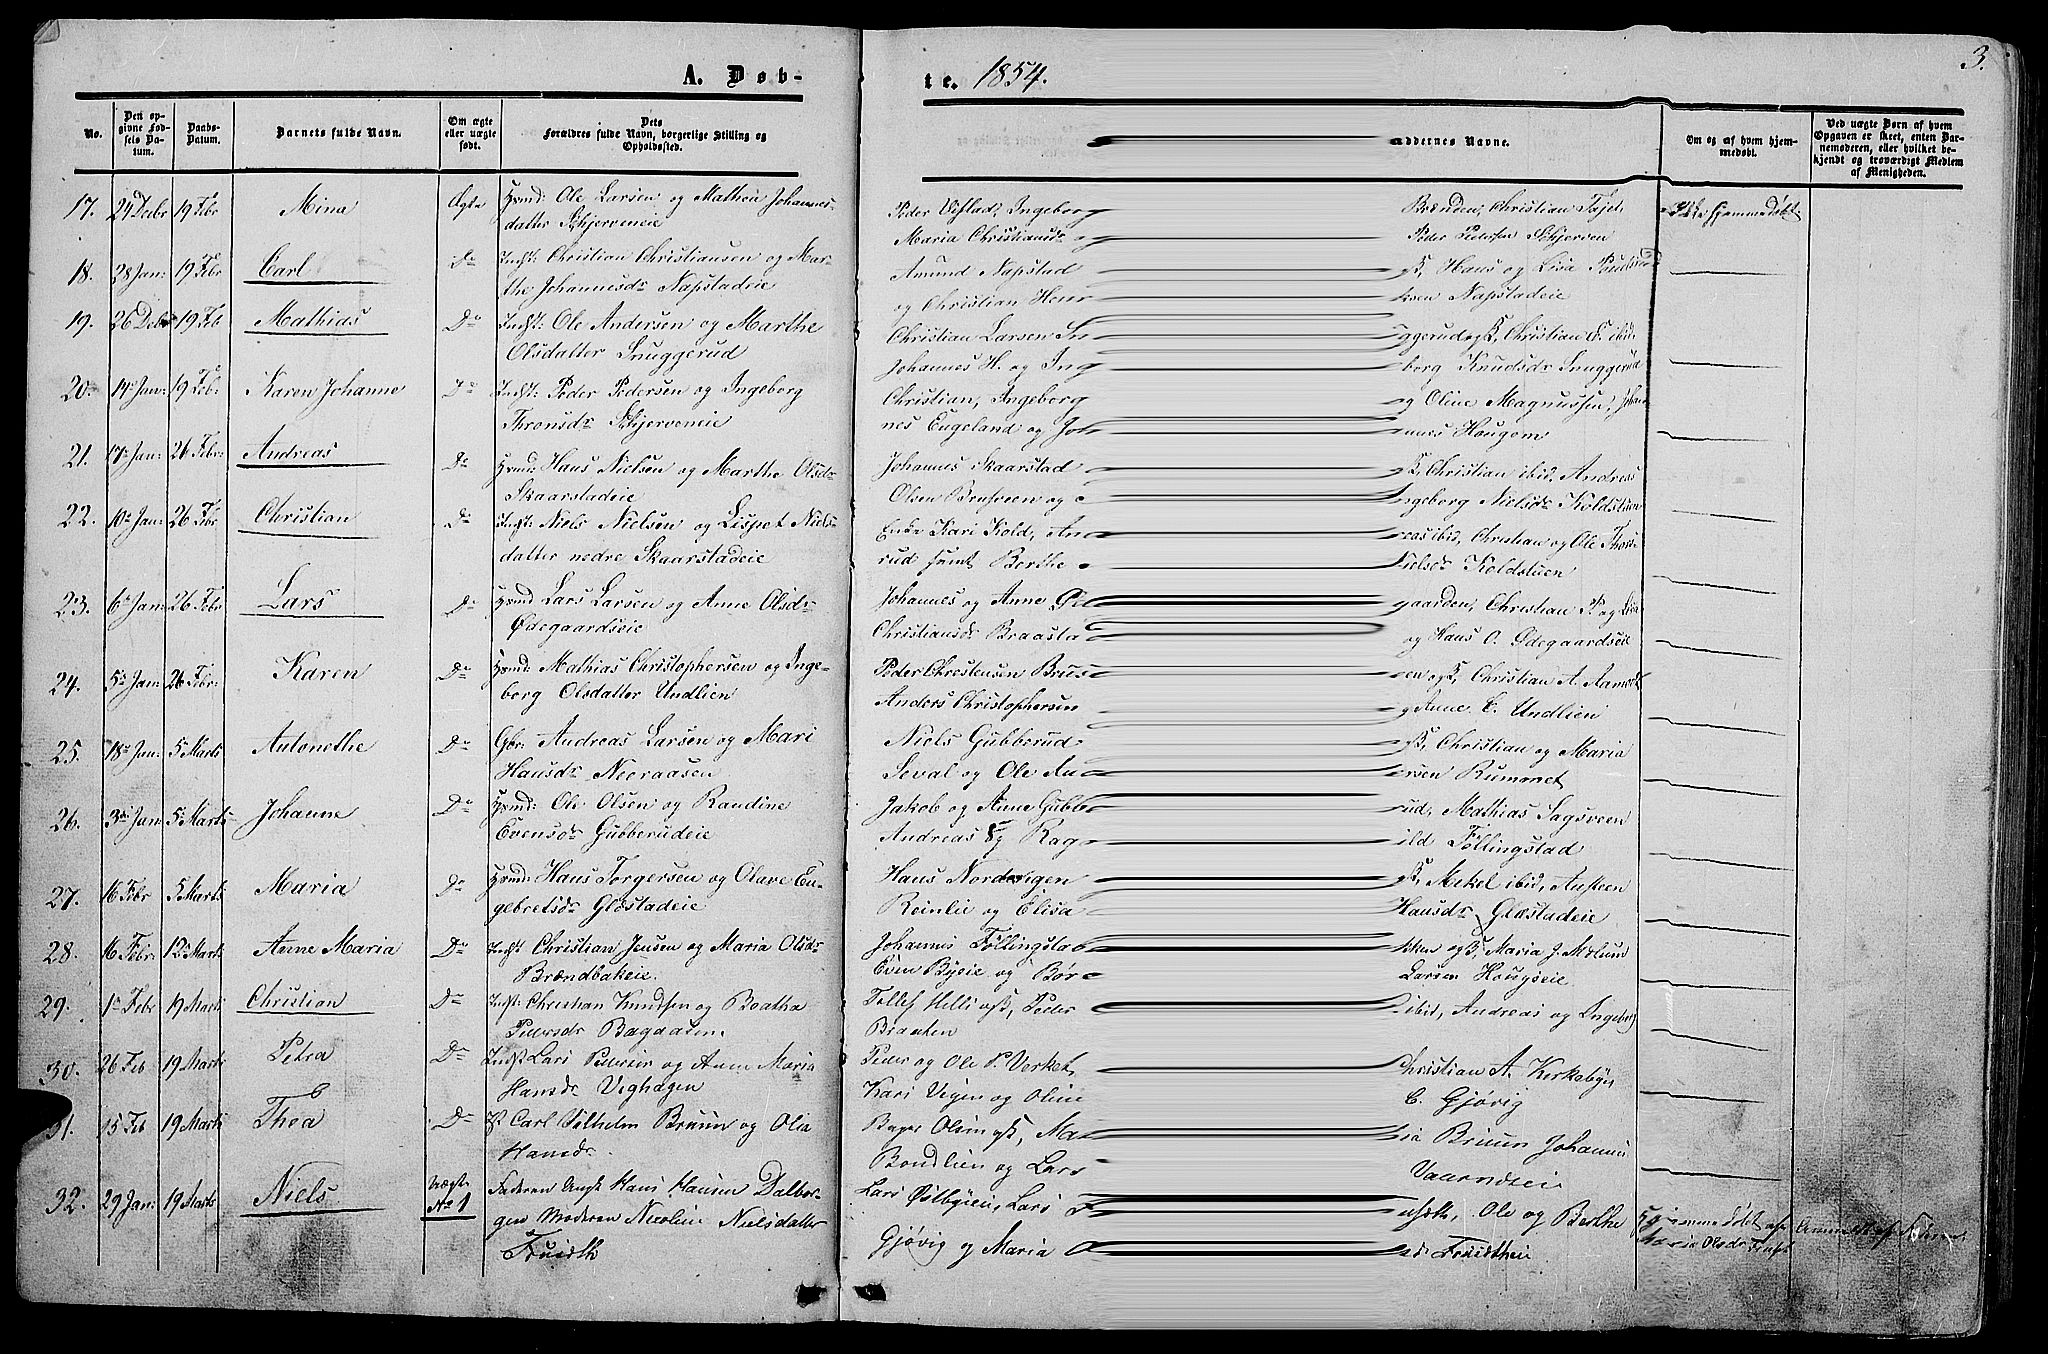 A. Døb-
te. 1854.
3.
No.
Den opgivne Fødsels Datum.
Daabs-Datum.
Barnets fulde Navn.
Om ægte eller uægte født.
Dets Forældres fulde Navn, borgerlige Stilling og Opholdssted.
addernes Navne.
Om og af hvem hjemmedøbt.
Ved uægte Børn af hvem Opgaven er skeet, enten Barnemoderen, eller hvilket bekjendt og troværdigt Medlem af Menigheden.
17. 24 Decbr 19 Febr Mina Ægte Ole Larsen og Mathea Johannes-
datter Schjerveneie
Peder Vestad, Ingeborg Brænden, Christian Tajet
Maria Christiansdr og Peder Pedersen Schjerven
hjemmedøbt
18. 28 Jan: 19 Febr Carl Do Indst: Christian Christiansen og Mar-
the Johannesdr Napstadeie
Amund Napstad Hans og Lisa
og Christian Henr ksen Napstadeie
19. 26 Debr 19 Feb Mathias Do Indst: Ole Andersen og Marthe
Olsdatter Snuggerud
Christian Larsen Sn ggerud og K, Christian E. ibid
Johannes H. og Ing borg Knudsdr Snuggerud
20. 14 Jan: 19 Feb. Karen Johanne Do Indst: Peder Pedersen og Ingeborg
Thronsdr Schjerveneie
Christian, Ingeborg og Oline Magnussen, Johan
nes Engeland og Joh nnes Haugom
21. 17 Jan: 26 Febr: Andreas Do Hmd: Hans Nielsen og Marthe Olsdr
Skaarstadeie
Johannes Skaarstad K, Christian ibid, Andreas
Olsen Brusveen og ngeborg Nielsdr Koldstuen
22. 10 Jan: 26 Febr Christian Do Indst: Niels Nielsen og Lispet Niels-
datter nedre Skaarstadeie
Enke Kari Kold, An reas ibid, Christian og Ole Thors
rud samt Berthe Nielsdr Koldstuen
23. 6 Jan: 26 Febr Lars Do Hmd Lars Larsen og Anne Olsdr
Ødegaardseie
Johannes og Anne Øde gaarden, Christian P. og Lisa
Christiansdr Braasta og Hans O. Ødegaardseie
24. 5 Jan: 26 Febr: Karen Do Hmd: Mathias Christophersen og Inge-
borg Olsdatter Undlien
Peder Christensen Brus en og K, Christian A. Aamodt
Anders Christophersen og Anne C. Undlien
25. 18 Jan: 5 Marts Antonethe Do Gbr: Andreas Larsen og Mari
Hansdr Neeraasen
Niels Gubberud K, Christian og Maria
Seval og Ole An ersen Rumonet
26. 3 Jan: 5 Marts Johanne Do Hmd: Ole Olsen og Randine
Evensdr Gubberudeie
Jakob og Anne Gubbe rud, Mathias Sagsveen
Andreas og Rag ild Føllingstad
27. 16 Febr 5 Marts Maria Do Hmd: Hans Torgersen og Olave En-
gebretsdr Glæstadeie
Hans Nordvegen K, Mekel ibid, Austeen
Reinlie og Elisa Hansdr Glæstadeie
28. 16 Febr: 12 Marts Anne Maria Do Indst Christian Jensen og Maria Olsdr
Brændbakeie.
Johannes Føllingsta kken og K, Maria J. Mælum
Even Byeie og Bør Larsen Hougseie
29. 1 Febr 19 Marts Christian Do Indst: Christian Knudsen og Beatha
Pedersdr Bagaasen.
Tollef Helli og K, Peder ibid, Andreas og Ingeborg
Braaten
30. 26 Feb 19 Marts Petra Do Indst Lars Pedersen og Anne Maria
Hansdr Veghagen
Peder og Ole P. Verket, Christian A. Kirkebye
Kari Vegen og Oline C. Gjøvig
31. 15 Feb 19 Marts Thea Do Carl Vilhelm Bruun og Olia
Hansdr.
Bager Olsen og K, Ma ria Bruun Johannes
Bondlien og Lars Vaarndseie
32. 29 Jan: 19 Marts Niels Uægte No 1 Faderen Ungk Hans Hansen Dalbor-
gen Moderen Nicoline Nielsdatter
Fruseth
Lars Østbyeie, Lars F useth, Ole og Berthe
Gjøvig og Maria O sdr Frusetheie
Hjemmedøbt af
Maria Olsdr Fruseth
Anmeldt af Faderen